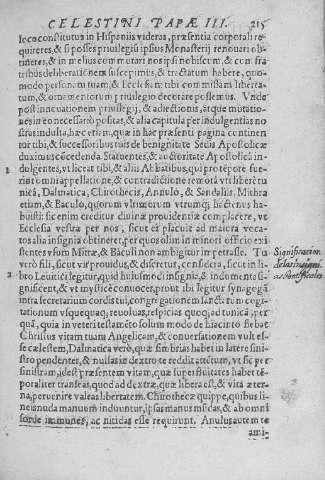 CELESTINI PAPAE III. 215
loco constitutus in Hispaniis videras, præsentia corporali re
quireres, & si posses priuilegiū ipsius Monasterij renouari ob
tineres, & in melius commutari nos ipsi nobiscum, & cum fra
tribus deliberationem suscepimus, & tractatum habere, quo-
modo personam tuam, & Ecclesiam tibi commissam liberta-
tum, & ornamentorum priuilegio decorare possemus. Vnde
post innouationem priuilegij, & adiectionis, atque mutatio-
nes in eo necessariò positas, & alia capitula per indulgentias no
stras indulta, hæc etiam, quæ in hac præsenti pagina continen
tur tibi, & successoribus tuis de benignitate Sedis Apostolicæ
duximus cōcedenda. Statuentes, & auctoritate Apostolica in-
dulgentes, vt liceat tibi, & aliis Abbatibus, qui pro tēpore fue-
rint omni appellatione, & contradictione remotâ vti libere tu
nicâ, Dalmatica, Chirothecis, Annulo, & Sandaliis, Mithra
etiam, & Baculo, quorum vltimorum vtrumq; hactenus ha-
buisti: sic enim creditur diuinæ prouidentiæ complacere, vt
Ecclesia vestra per nos, sicut ex placuit ad maiora voca-
tos alia insignia obtineret, per quos olim in minori officio exi-
stentes vsum Mitræ, & Baculi non ambigitur impetrasse. Tu
verò fili, sicut vir prouidus, & discretus, considera, sicut in li-
bro Leuitici legitur, quid huiusmodi insignia, & indumenta si-
gnificent, & vt mysticè conuocer, prout ibi legitur synagogā
intra secretarium cordis tui, congregationem sanctarum cogi-
tationum vsquequaq; reuoluas, respicias quoq; ad tunicā, per
quā, quia in veteri testamēto solum modo de hiacinto fiebat
Christus vitam tuam Angelicam, & conuersationem vult es-
se cælestem, Dalmatica verò, quæ fimbrias habet in latere sini-
stro pendentes, & nullas in dextro te reddit attētum, vt sic per
sinistram, idest præsentem vitam, quæ superfluitates habet tē-
poraliter transeas, quod ad dextræ, quæ libera est, & vita æter-
na, peruenire valeas libertatem. Chirothecæ quippe, quibus li-
neis nuda manuum induuntur, ipsas manus mūdas, & ab omni
sorde immunes, ac nitidas esse requirunt. Anulus autem te
ami-
Significatio